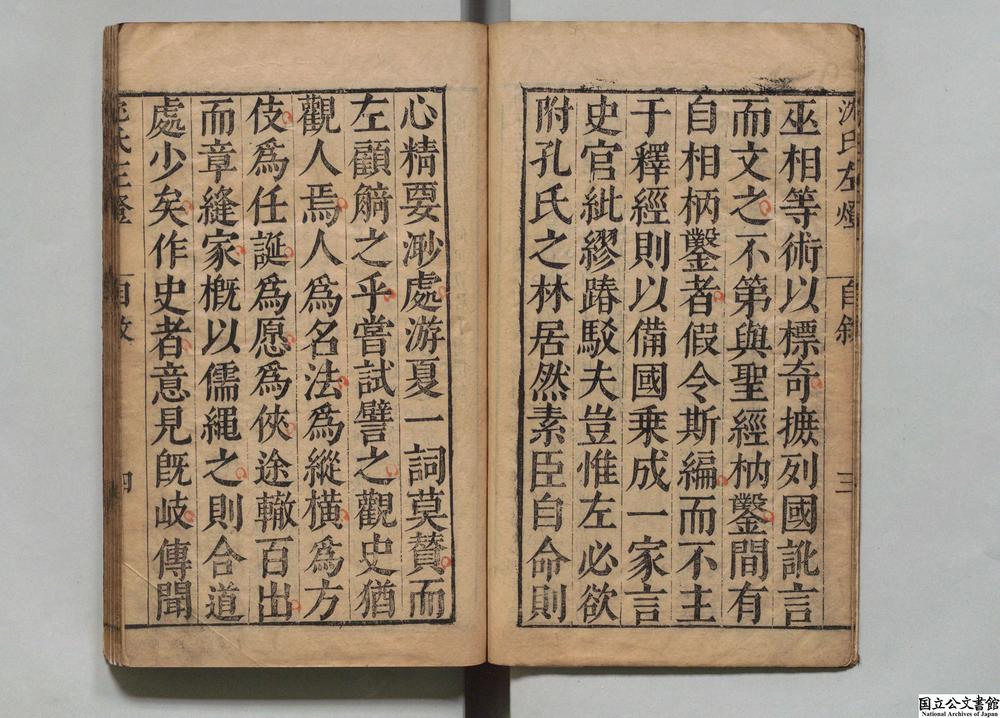 沈氏左燈 自敘 三
巫相等術以標奇摭列國訛言
而文之不第與聖經枘鑿間有
自相枘鑿者假令斯編而不主
于釋經則以備國乗成一家言
史官紕繆踳駁夫豈惟左必欲
附孔氏之林居然素臣自命則
心精要渺處游夏一詞莫贊而
左顧觭之乎嘗試譬之觀史猶
觀人焉人爲名法爲縱橫爲方
伎爲任誕爲愿爲俠途轍百出
而章縫家概以儒繩之則合道
處少矣作史者意見旣岐傳聞
沈氏左燈 自敘 四
国立公文書館
National Archives of Japan